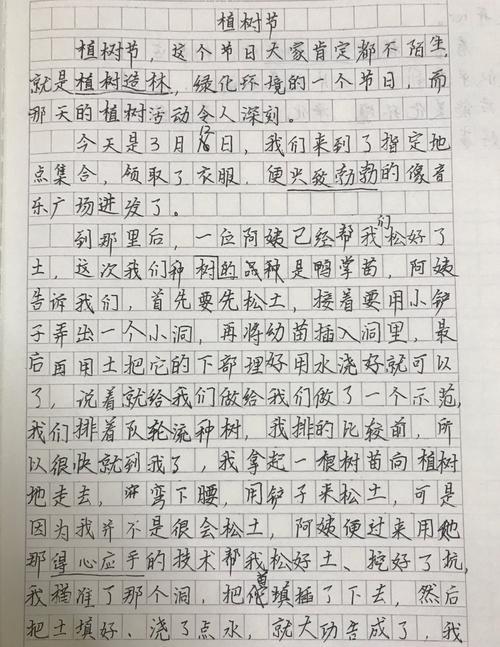 植树节
植树节，这个节日大家肯定都不陌生，
就是植树造林，绿化环境的一个节日，而
那天的植树活动令人深刻。
今天是3月日，我们来到了指定地
点集合，领取了衣服，便兴致勃勃的像音
乐广场进发了。
到那里后，一位阿姨已经帮我们松好了
土，这次我们种树的品种是鸭掌苗，阿姨
告诉我们，首先要先松土，接着要用小铲
子弄出一个小洞，再将幼苗插入洞里，最
后再用土把它的下部理好用水浇好就可以
了，说着就给我们做给我们做了一个示范，
我们排着队轮流种树，我排的比较前，所
以很快就到我了，我拿起一根树苗向植树
地走去，弯下腰，用铲子来松土，可是
因为我并不是很会松土，阿姨便过来用她
那得心应手的技术帮我松好土、挖好了坑，
我准了那个洞，把填插了下去，然后
把土填好、浇了点水，就大功告成了，我